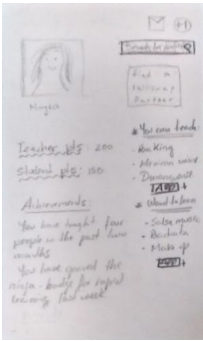 Search for people
Find a
Teaching
Partner
Teacher pts: 200
Student pts: 150
Achievements:
You have taught four
people in the past two
months
You have gained the
ninja-badge for rapid
learning last week
You can teach:
- Baking
- Mexican
ADD +
Want to learn
- Salsa
- Bachata
- Make up
ADD +